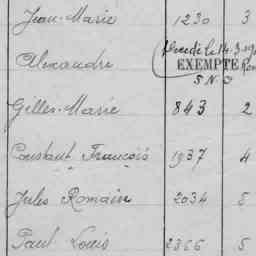 Jean-Marie 1230 3
Alexandre décédé le 14.3.19
EXEMPTÉ
S N °
Gilles-Marie 843 2
Constant François 1937 4
Jules Romain 2034 5
Paul Louis 2366 5